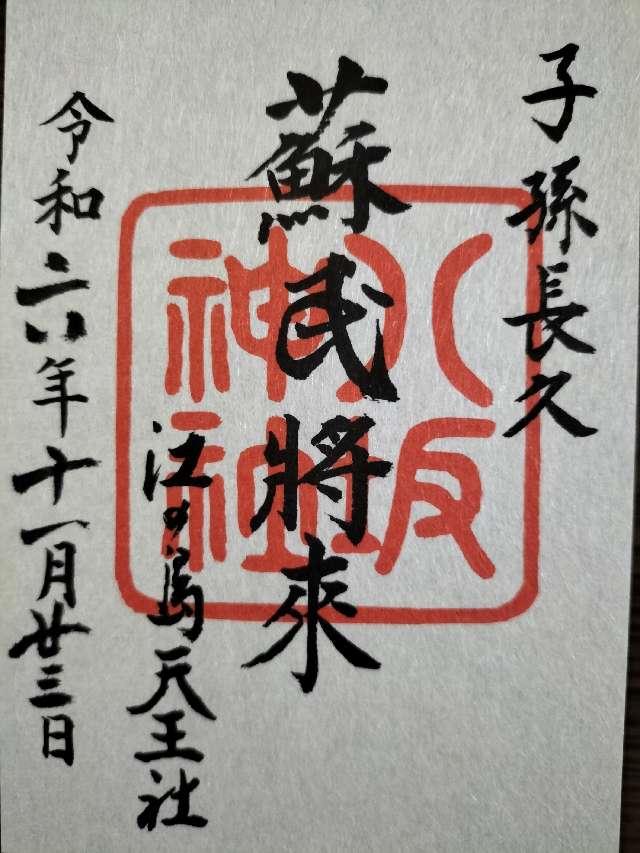 子孫長久
蘇民將來
江の島天王社
令和六年十一月廿三日
八坂
神社